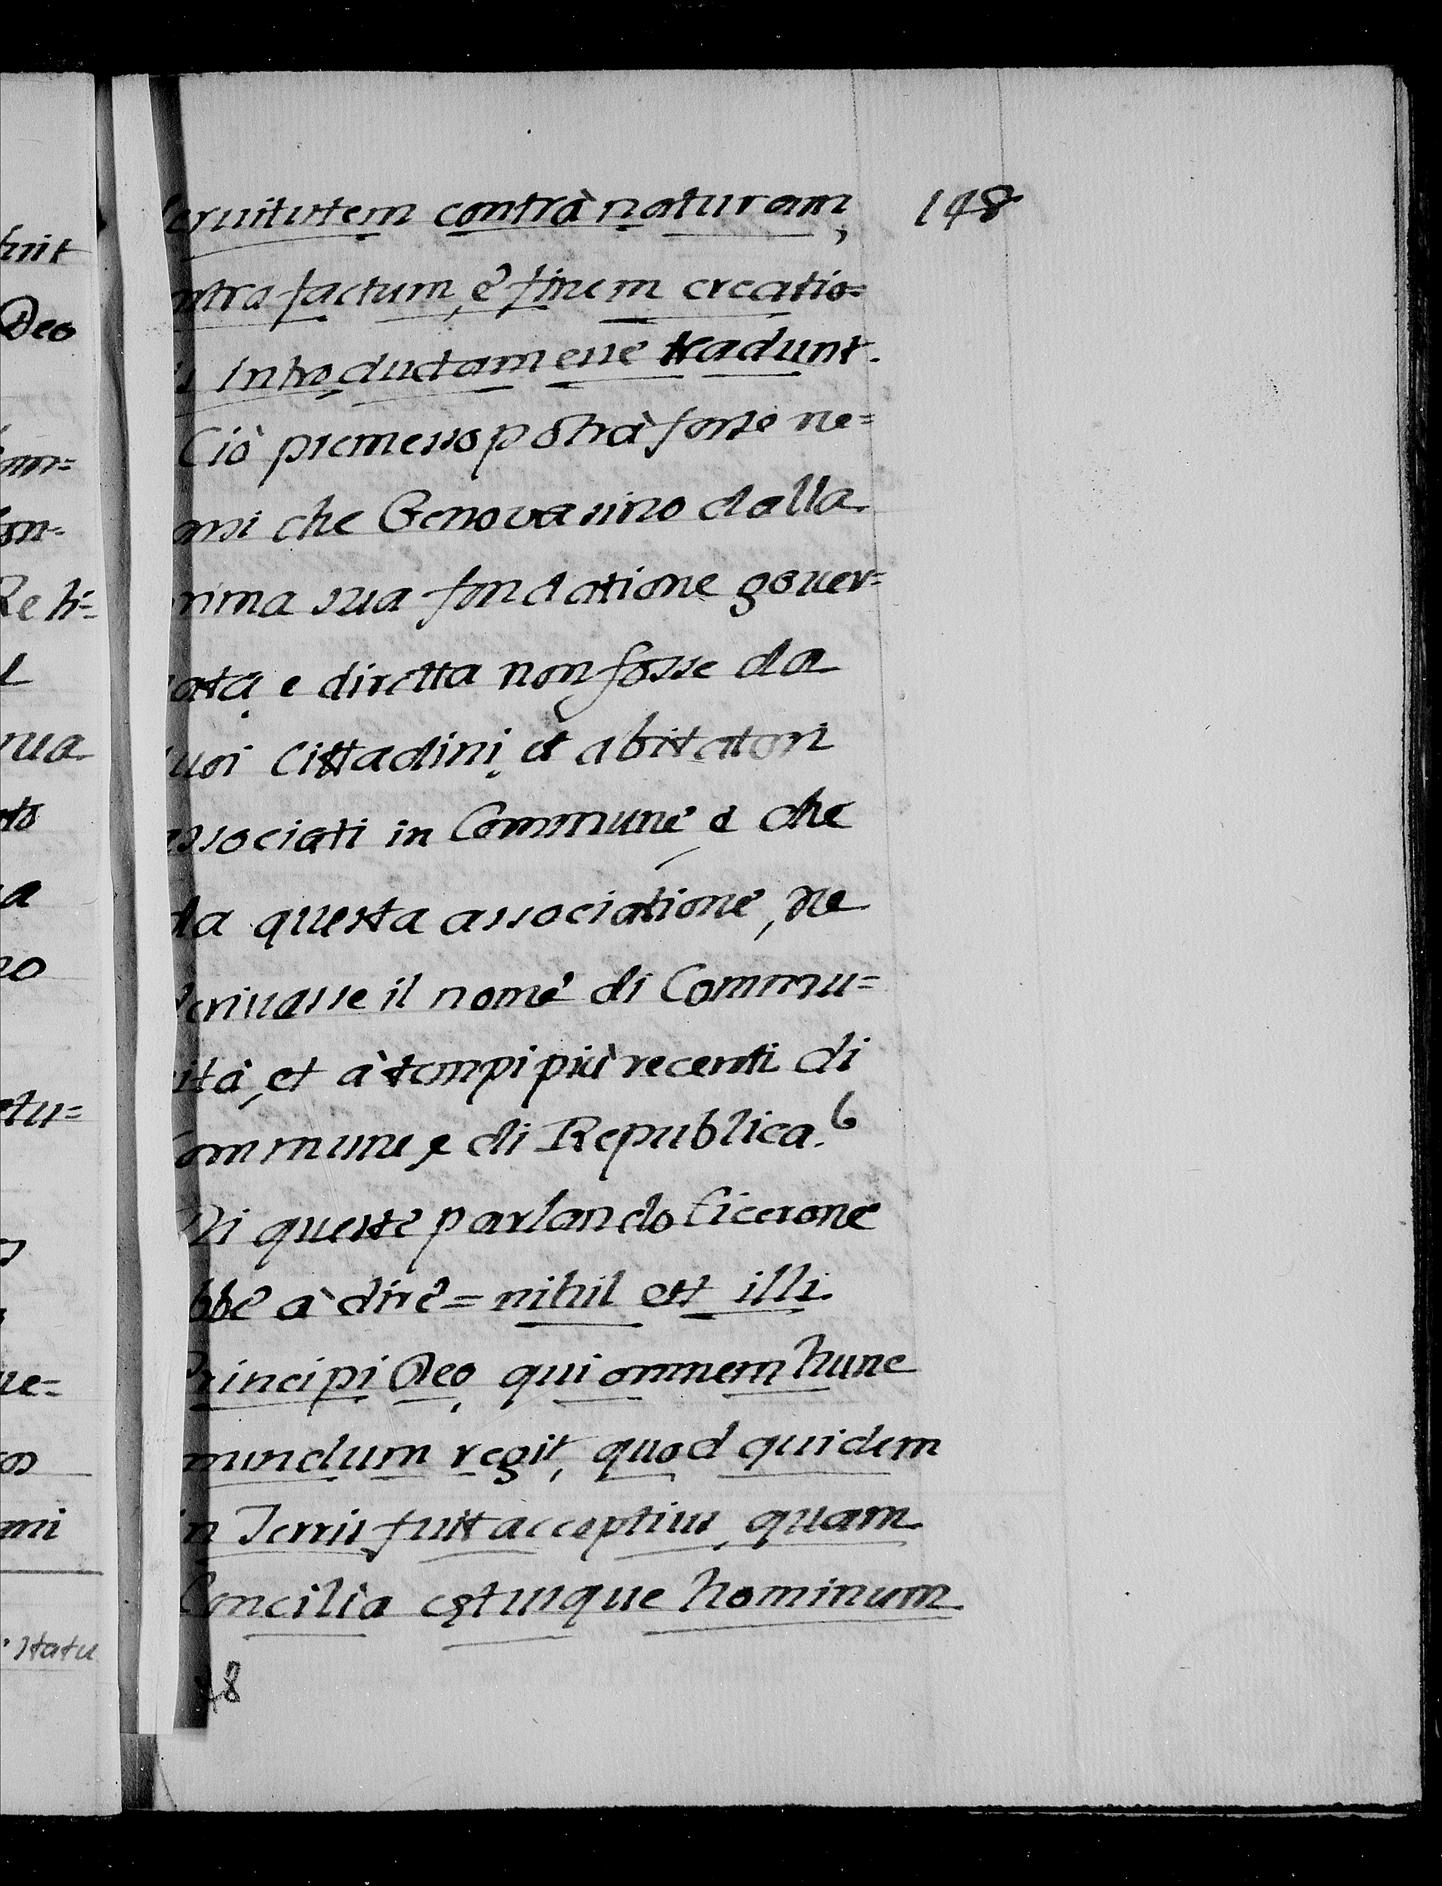 148
seruitutem contrà naturam,
ntra factum, è finem creatio=
s introductam esse tradunt.
Ciò premesso potrà forse ne=
arsi che Genova sino dalla
rima sua fondatione gouer=
nata e diretta non fosse da
suoi Cittadini, et abitatori
associati in Commune, e che
da questa associatione, ne
deriuasse il nome di Commu=
nità, et à tempi più recenti di
Commune, e di Republica.6
Di queste parlando Cicerone
bbe à dire = nihil est illi
Principi Deo, qui omnem hunc
mundum regit, quod quidem
in Terris fuit acceptius, quam
Concilia cętusque hominum
48